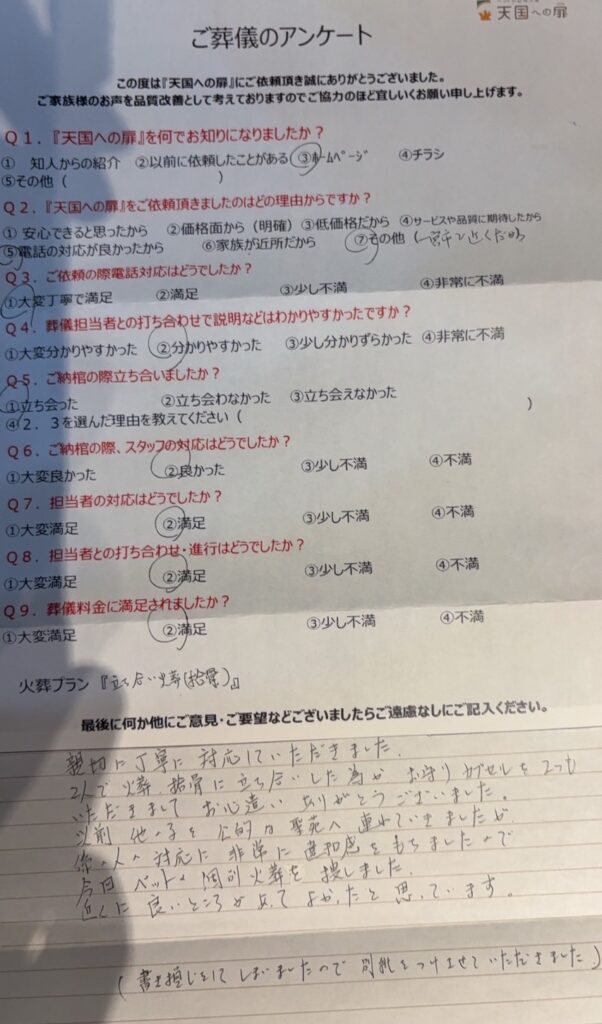 天国への扉
ご葬儀のアンケート
この度は『天国への扉』にご依頼頂き誠にありがとうございました。
ご家族様のお声を品質改善として考えておりますのでご協力のほど宜しいくお願い申し上げます。
Q1.『天国への扉』を何でお知りになりましたか？
① 知人からの紹介 ②以前に依頼したことがある ③ﾎｰﾑﾍﾟｰｼﾞ ④チラシ
⑤その他（ ）
Q2.『天国への扉』をご依頼頂きましたのはどの理由からですか？
① 安心できると思ったから ②価格面から（明確） ③低価格だから ④サービスや品質に期待したから
⑤電話の対応が良かったから ⑥家族が近所だから ⑦その他（一宮で近くだから
Q3.ご依頼の際電話対応はどうでしたか？
①大変丁寧で満足 ②満足 ③少し不満 ④非常に不満
Q4.葬儀担当者との打ち合わせで説明などはわかりやすかったですか？
①大変分かりやすかった ②分かりやすかった ③少し分かりずらかった ④非常に不満
Q5.ご納棺の際立ち合いましたか？
①立ち会った ②立ち会わなかった ③立ち会えなかった
④2．3を選んだ理由を教えてください（ ）
Q6.ご納棺の際、スタッフの対応はどうでしたか？
①大変良かった ②良かった ③少し不満 ④不満
Q7.担当者の対応はどうでしたか？
①大変満足 ②満足 ③少し不満 ④不満
Q8.担当者との打ち合わせ・進行はどうでしたか？
①大変満足 ②満足 ③少し不満 ④不満
Q9.葬儀料金に満足されましたか？
①大変満足 ②満足 ③少し不満 ④不満
火葬プラン『立ち合い火葬（拾骨）』
最後に何か他にご意見・ご要望などございましたらご遠慮なしにご記入ください。
親切に丁寧に対応していただきました。
2人で火葬 拾骨に立ち合いした為か お守りカプセルを2つも
いただきまして お心遣い ありがとうございました。
以前 他の子を公的な聖苑へ連れていきましたが
係の人の対応に非常に違和感をもちましたので
今回 ペットの個別火葬を捜しました。
近くに良いところがあってよかったと思っています。
（書き損じをしてしまいましたので 別紙をつけさせていただきました）